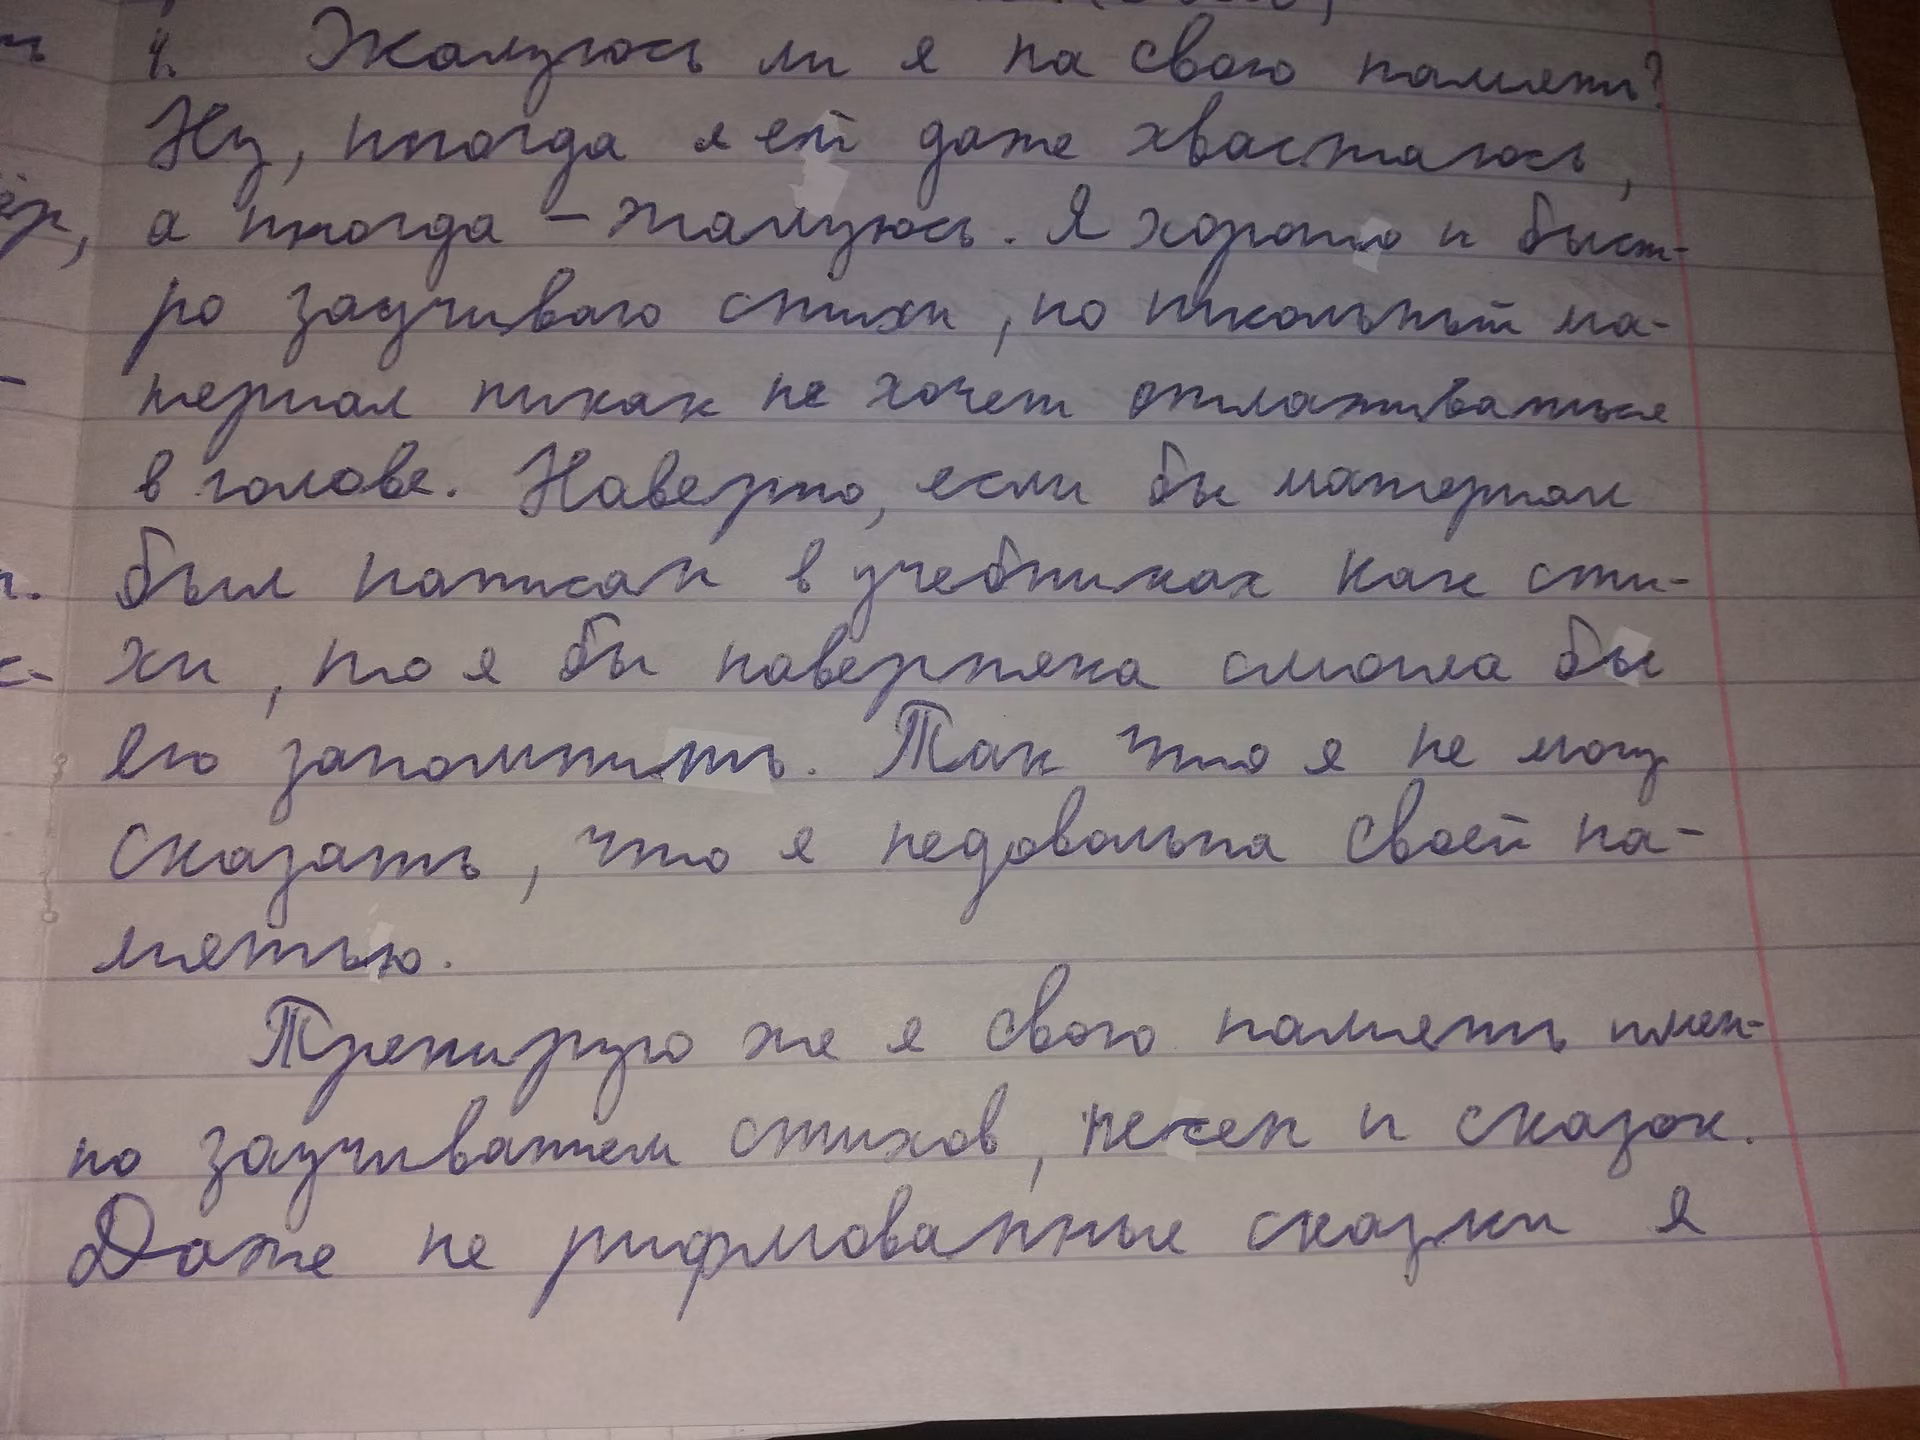 4. Жалуюсь ли я на свою память?
Ну, иногда я ей даже хвастаюсь,
а иногда – жалуюсь. Я хорошо и быст-
ро заучиваю стихи, но школьный ма-
териал никак не хочет отлаживаться
в голове. Наверно, если бы материал
был написан в учебниках как сти-
хи, то я бы наверняка смогла бы
его запомнить. Так что я не могу
сказать, что я недовольна своей па-
мятью.
Тренирую же я свою память имен-
но заучиванием стихов, песен и сказок.
Даже не рифмованные сказки я